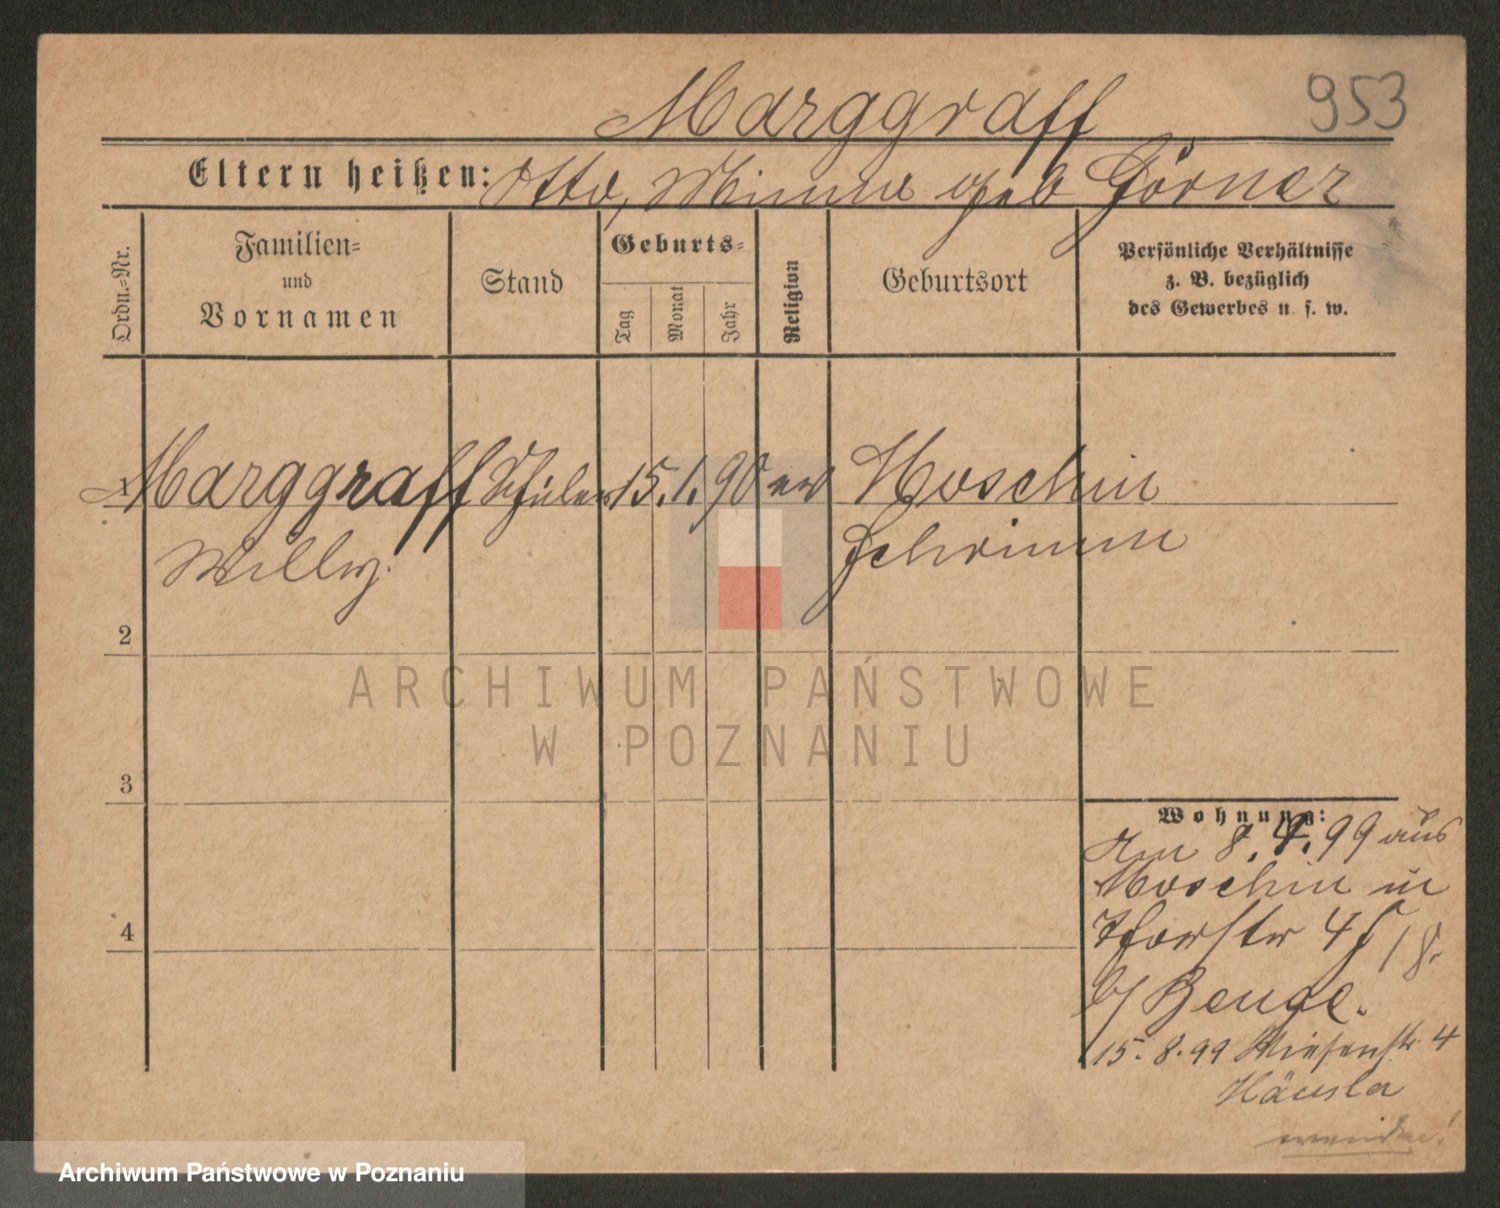 953
Marggraff
Eltern heißen: Otto, Minna geb Görner
Ordn.-Nr.
Familien-
und
Vornamen
Stand
Geburts-
Tag
Monat
Jahr
Religion
Geburtsort
Persönliche Verhältnisse
z. B. bezüglich
des Gewerbes u. s. w.
1 Marggraff Schüler 15. 1. 90 ev Moschin
Willy. Schrimm
2
3
4
Wohnung:
Am 8. 4. 99 aus
Moschin in
18.
b/ Benge.
15. 8. 99 Wiesenstr. 4
Häusler
wenden!
ARCHIWUM PAŃSTWOWE
W POZNANIU
Archiwum Państwowe w Poznaniu